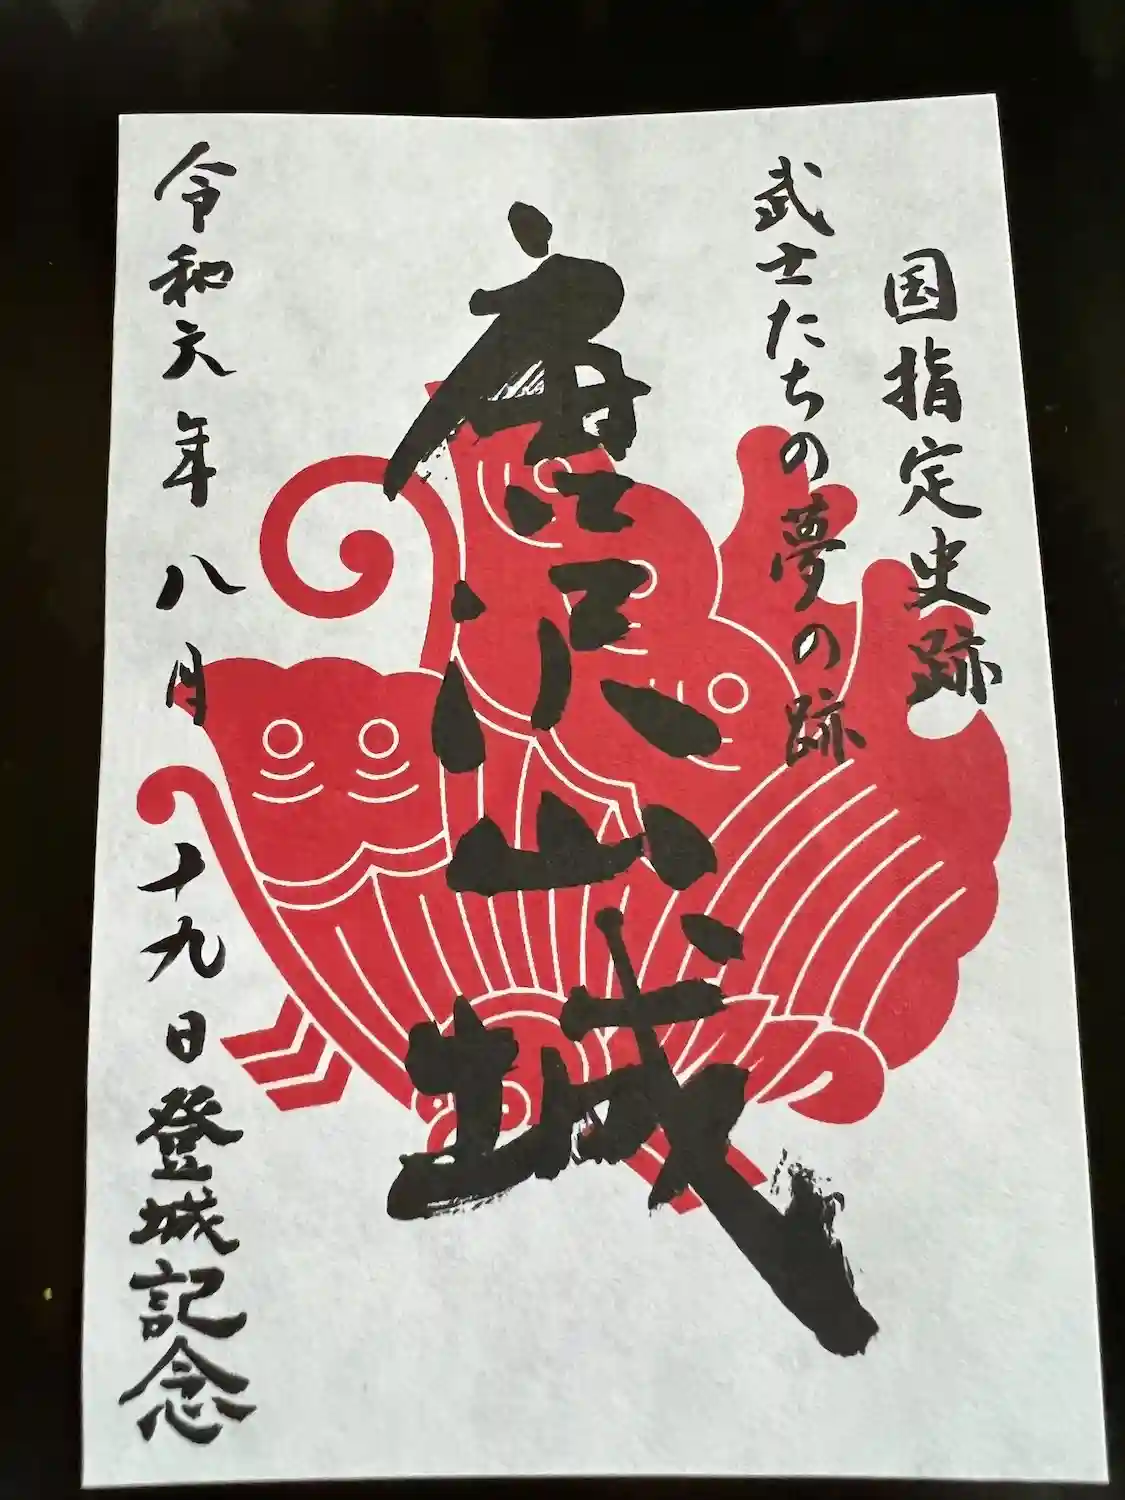 国指定史跡
武士たちの夢の跡
唐沢山城
令和六年八月十九日登城記念